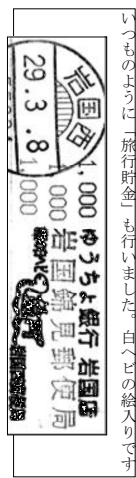 いつものように「旅行貯金」も行いました。白ヘビの絵入りです
岩国西
29.3.8
1,000
1 000
1000
ゆうちょ銀行 岩国店
岩国錦見郵便局